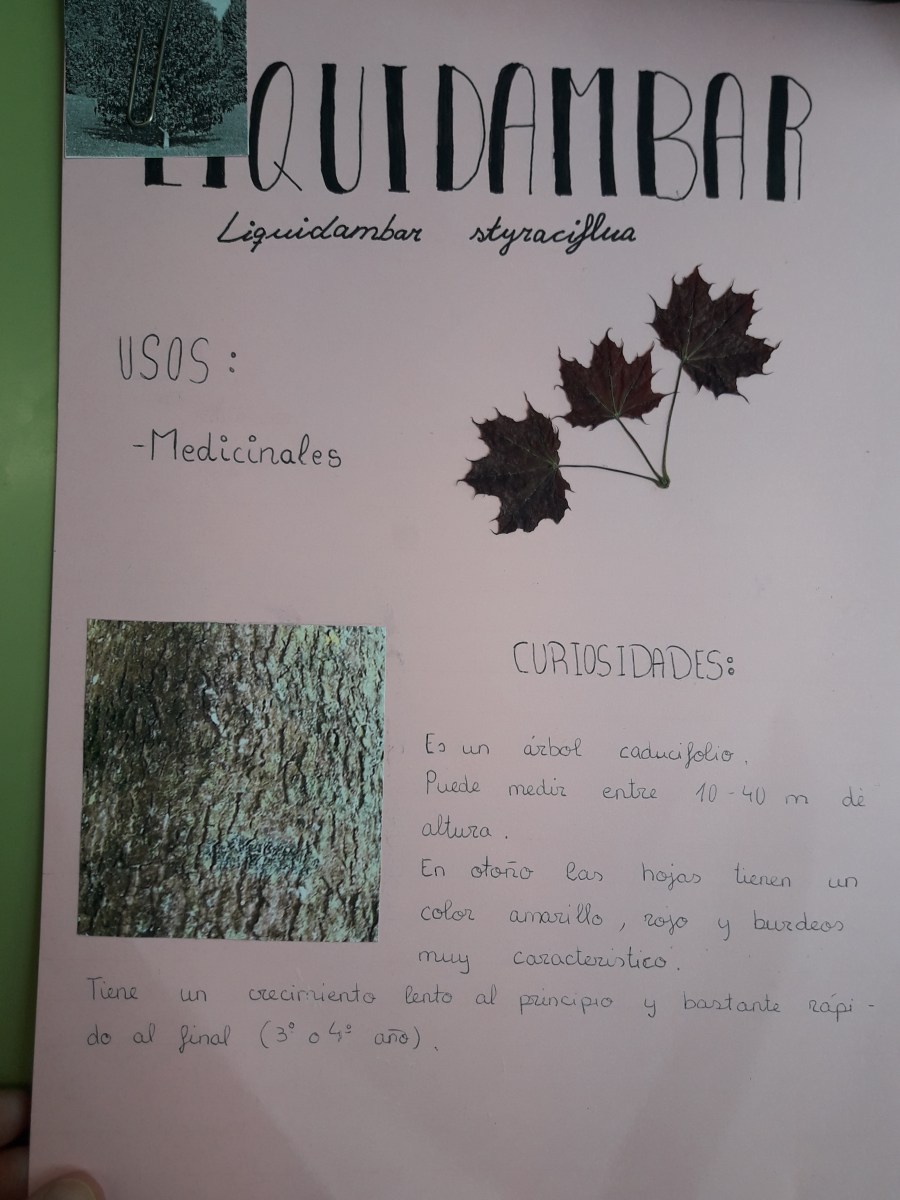 LIQUIDAMBAR
Liquidambar styraciflua
USOS:
-Medicinales
CURIOSIDADES:
Es un árbol caducifolio.
Puede medir entre 10-40 m de
altura.
En otoño las hojas tienen un
color amarillo, rojo y burdeos
muy característico.
Tiene un crecimiento lento al principio y bastante rápi-
do al final (3º o 4º año).